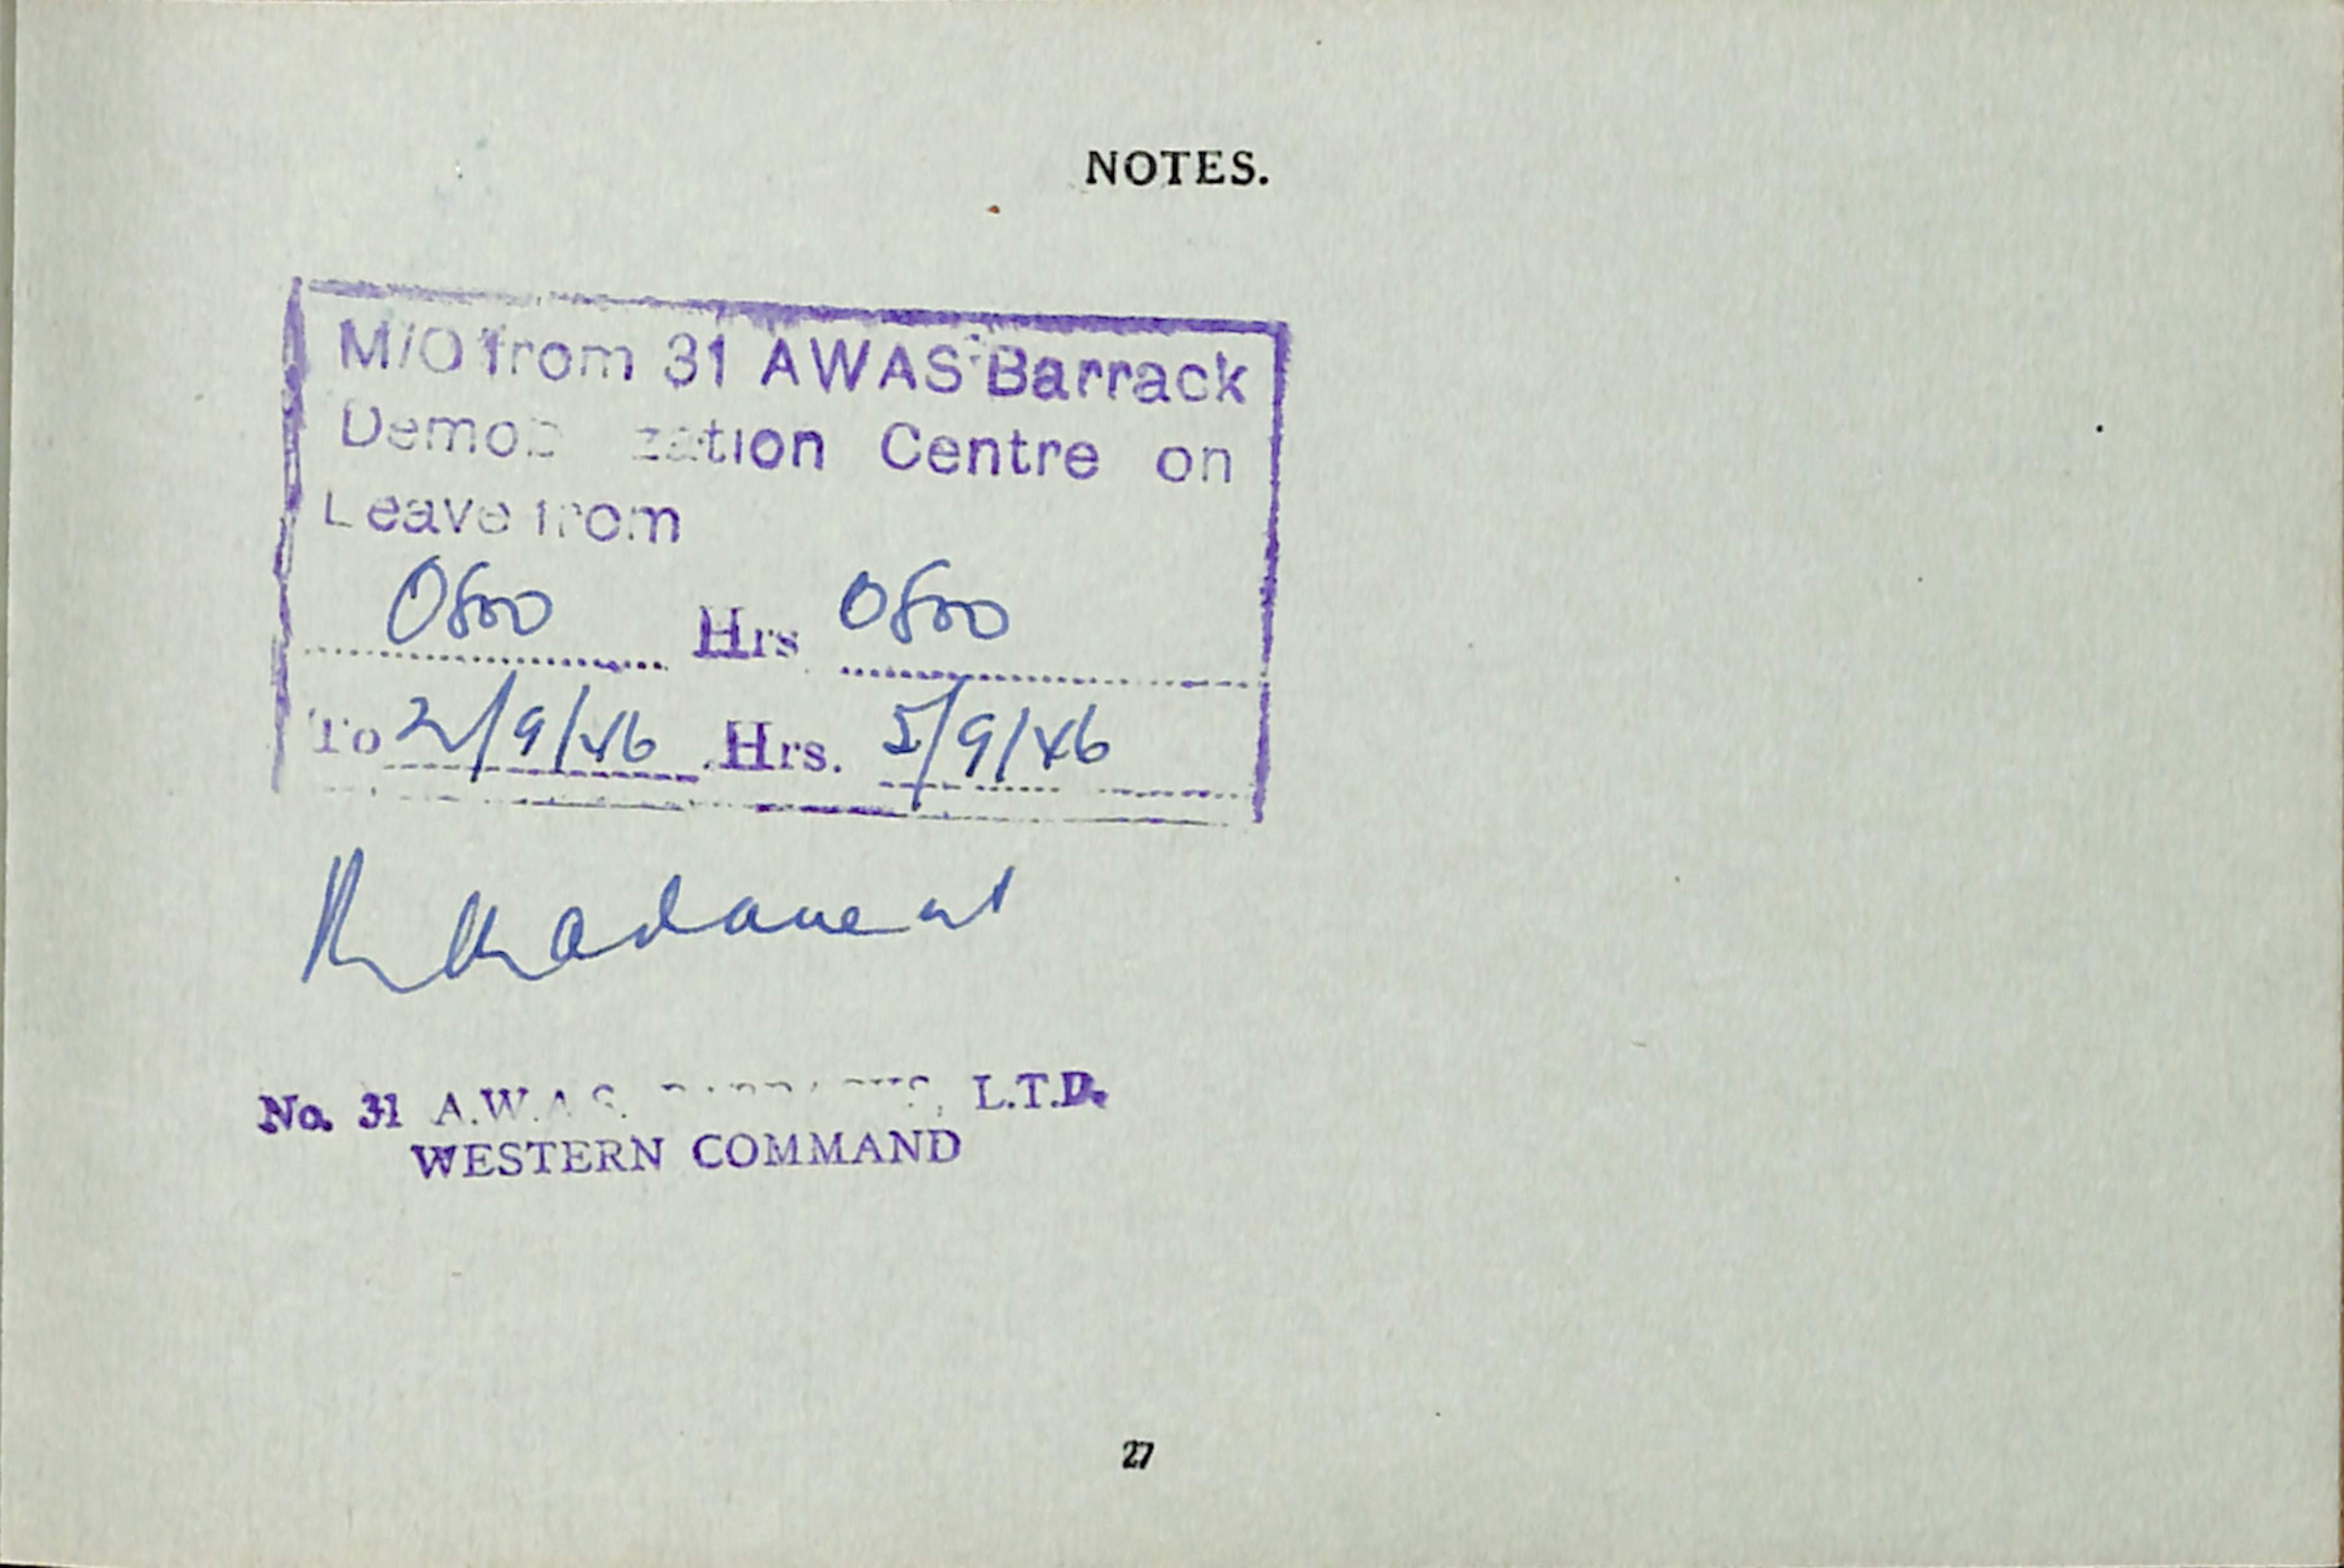 NOTES.
M/O from 31 AWAS Barrack
Demob zation Centre on
Leave from
0800 Hrs 0800
To 2/9/46 Hrs. 5/9/46
No. 31 A.W.A.S. L.T.D.
WESTERN COMMAND
27